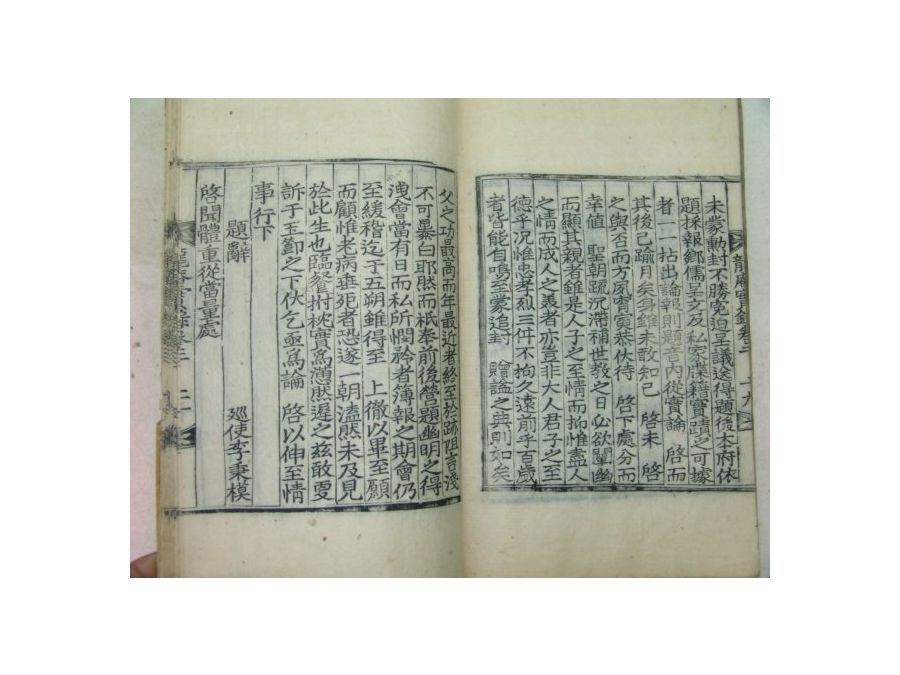 龍庵實錄卷二
十九
未蒙勳封不勝寃迫呈議送得題後本府依
題採報鄕儒呈文及私家牒籍實蹟之可據
者一一拈出論報則題音內從實論 啓而
其後已踰月矣身雖未敢知已 啓未 啓
之與否而方夙宵寅恭伏待 啓下處分而
幸値 聖朝疏沉滯補世敎之日必欲闡幽
而顯其親者雖是人子之至情而抑惟盡人
之情而成人之美者亦豈非大人君子之至
德乎況惟忠孝烈三件不拘久遠前乎百歲
者皆能自鳴至蒙追封 贈諡之典則如矣
父之功最高而年最近者終至於跡阻言淺
不可暴白耶肰而祇奉前後營題幽明之得
洩會當有日而私所憫矜者簿報之期會仍
至緩稽迄于五朔雖得至 上徹以畢至願
而顧惟老病垂死者恐遂一朝溘肰未及見
於此生也臨餐拊枕實爲懣肰遲之玆敢更
訴于玉節之下伏乞亟爲論 啓以伸至情
事行下
題辭 廵使李秉模
啓聞體重從當量處